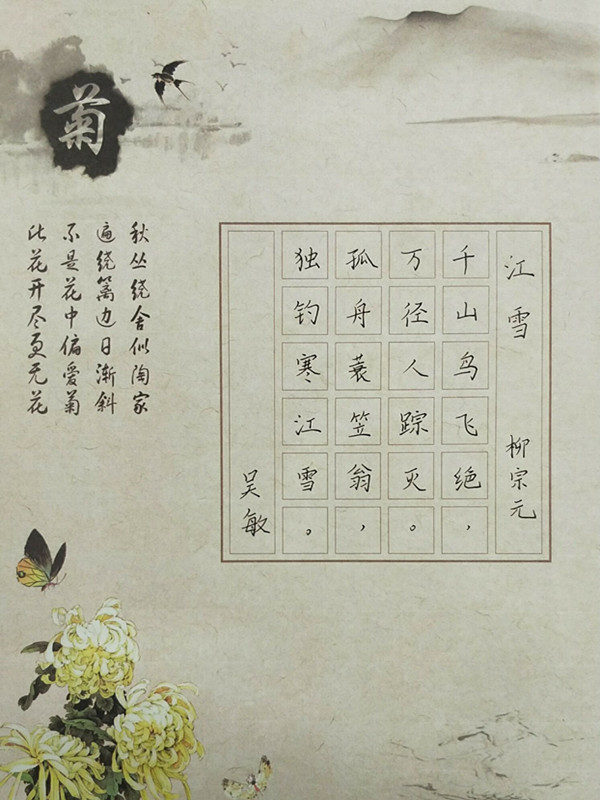 菊
江雪 柳宗元
千山鸟飞绝，
万径人踪灭。
孤舟蓑笠翁，
独钓寒江雪。
吴敏
秋丛绕舍似陶家
遍绕篱边日渐斜
不是花中偏爱菊
此花开尽更无花